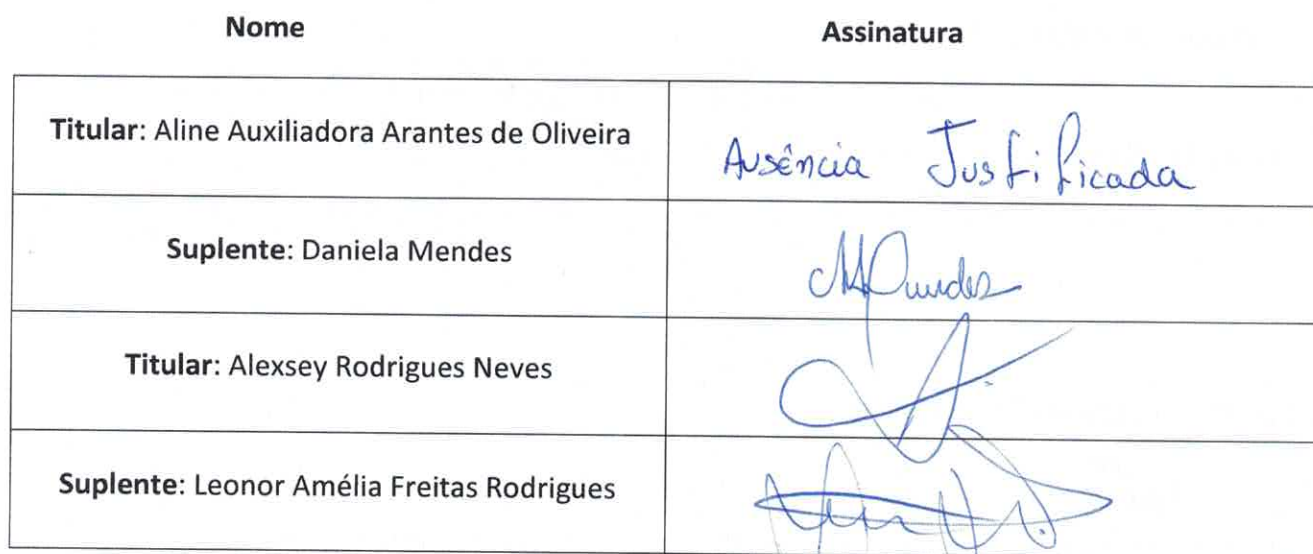 Nome Assinatura
Titular: Aline Auxiliadora Arantes de Oliveira Ausência Justificada
Suplente: Daniela Mendes
Titular: Alexsey Rodrigues Neves
Suplente: Leonor Amélia Freitas Rodrigues